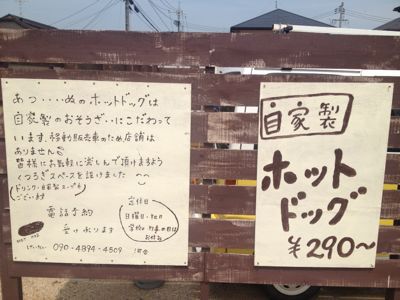 あつ・・・・ぬのホットドッグは
自家製のおそうざいにこだわって
います。移動販売車のため店舗は
ありませんが
皆様にお気軽に楽しんで頂けますよう
くつろぎスペースを設けました
ドリンク・日替スープも
ございます
電話予約
受け承ります
けいたい 090-4894-4509
定休日
日曜日・祝日
学校行事の日は
お休み
HOT DOG
自家製
ホット
ドッグ
¥290〜